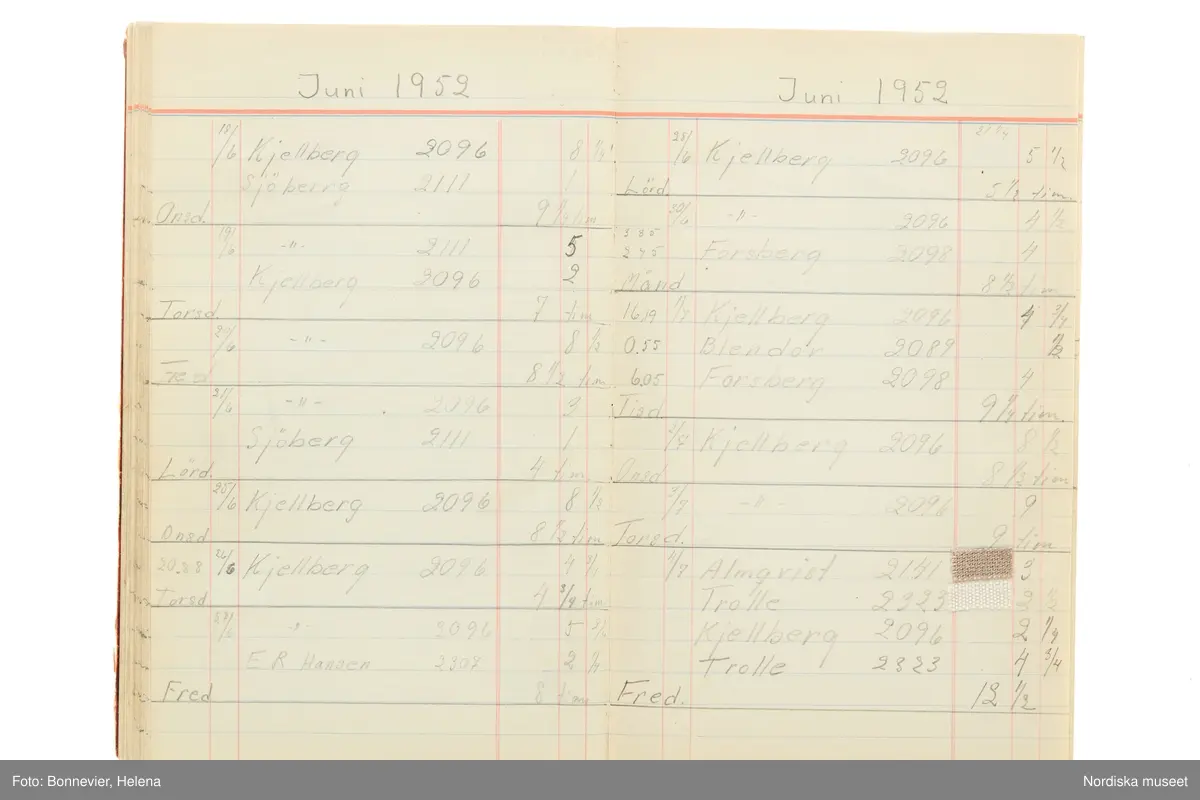 Juni 1952
18/6 Kjellberg 2096 8 1/2
Sjöberrg 2111 1
Onsd. 9 1/2 tim
19/6 -"- 2111 5
Kjellberg 2096 2
Torsd. 7 tim
20/6 -"- 2096 8 1/2
8 1/2 tim.
21/6 -"- 2096 3
Sjöberg 2111 1
Lörd. 4 tim.
25/6 Kjellberg 2096 8 1/2
Onsd 8 1/2 tim
20.88 26/6 Kjellberg 2096 4 3/4
Torsd 4 3/4 tim.
27/6 -"- 2096 5
E R Hansen 2307 2
Fred 8 tim
Juni 1952
28/6 Kjellberg 2096 5 1/2
Lörd. 5 1/2 tim.
30/6 -"- 2096 4 1/2
Forsberg 2098 4
Månd 8 1/2 tim
16.19 1/7 Kjellberg 2096 4 3/4
0.55 Blendor 2089 1/2
6.05 Forsberg 2098 4
Tisd. 9 1/4 tim
2/7 Kjellberg 2096 8 1/2
Onsd 8 1/2 tim
3/7 -"- 2096 9
Torsd. 9 tim
4/7 Almqvist 2141 3
Trolle 2323 2 1/2
Kjellberg 2096 2 1/4
Trolle 2323 4 3/4
Fred. 12 1/2
Foto: Bonnevier, Helena
Nordiska museet